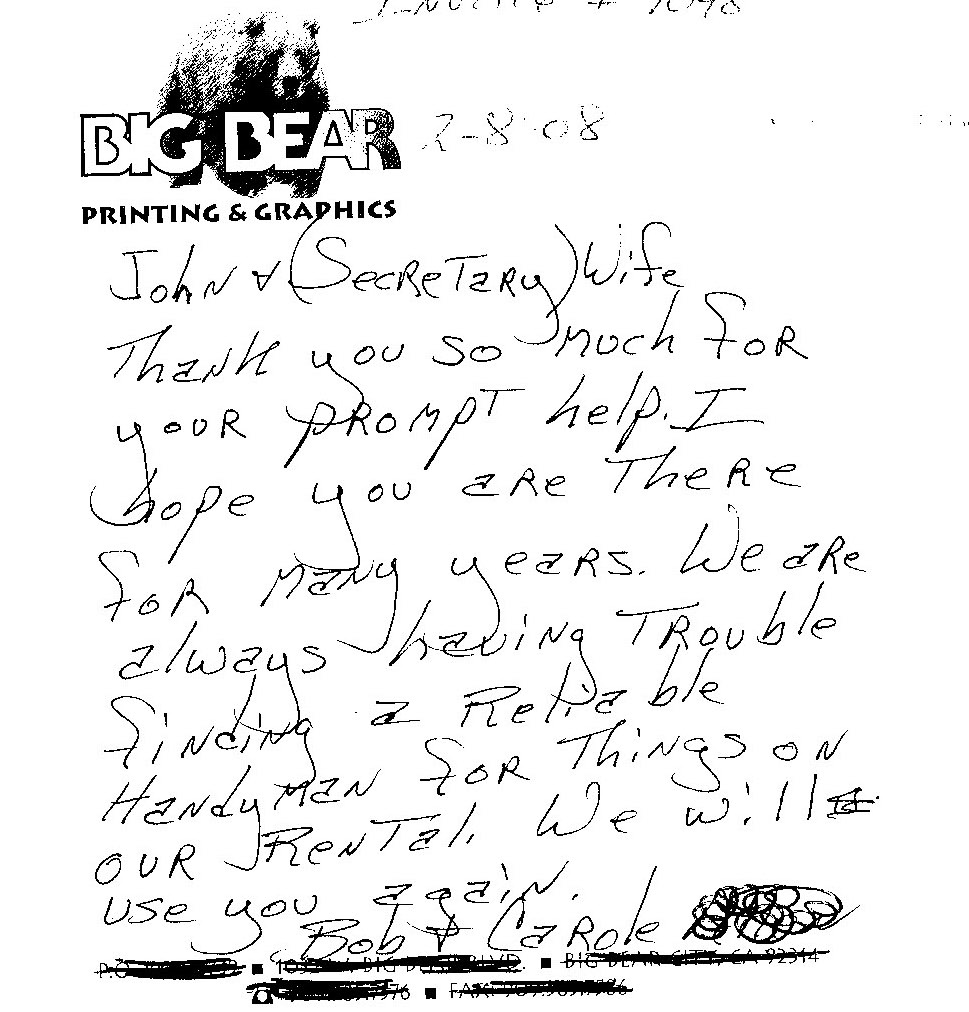 2-8-08
BIG BEAR
PRINTING & GRAPHICS
John & (Secretary) Wife
Thank you so much for
your prompt help. I
hope you are there
for many years. We are
always having trouble
finding a reliable
Handyman for things on
our rental. We will
use you again.
Bob & Carole
BIG BEAR CITY, CA 92314
FAX: